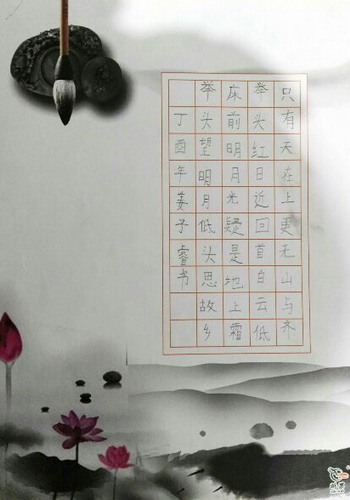 只有天在上更无山与齐
举头红日近回首白云低
床前明月光疑是地上霜
举头望明月低头思故乡
丁酉年姜子睿书